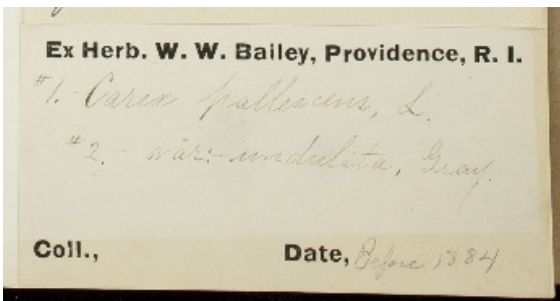 Ex Herb. W. W. Bailey, Providence, R. I.
#1.- Carex pallescens, L.
#2.- var:- undulata, Gray.
Coll., Date, Before 1884